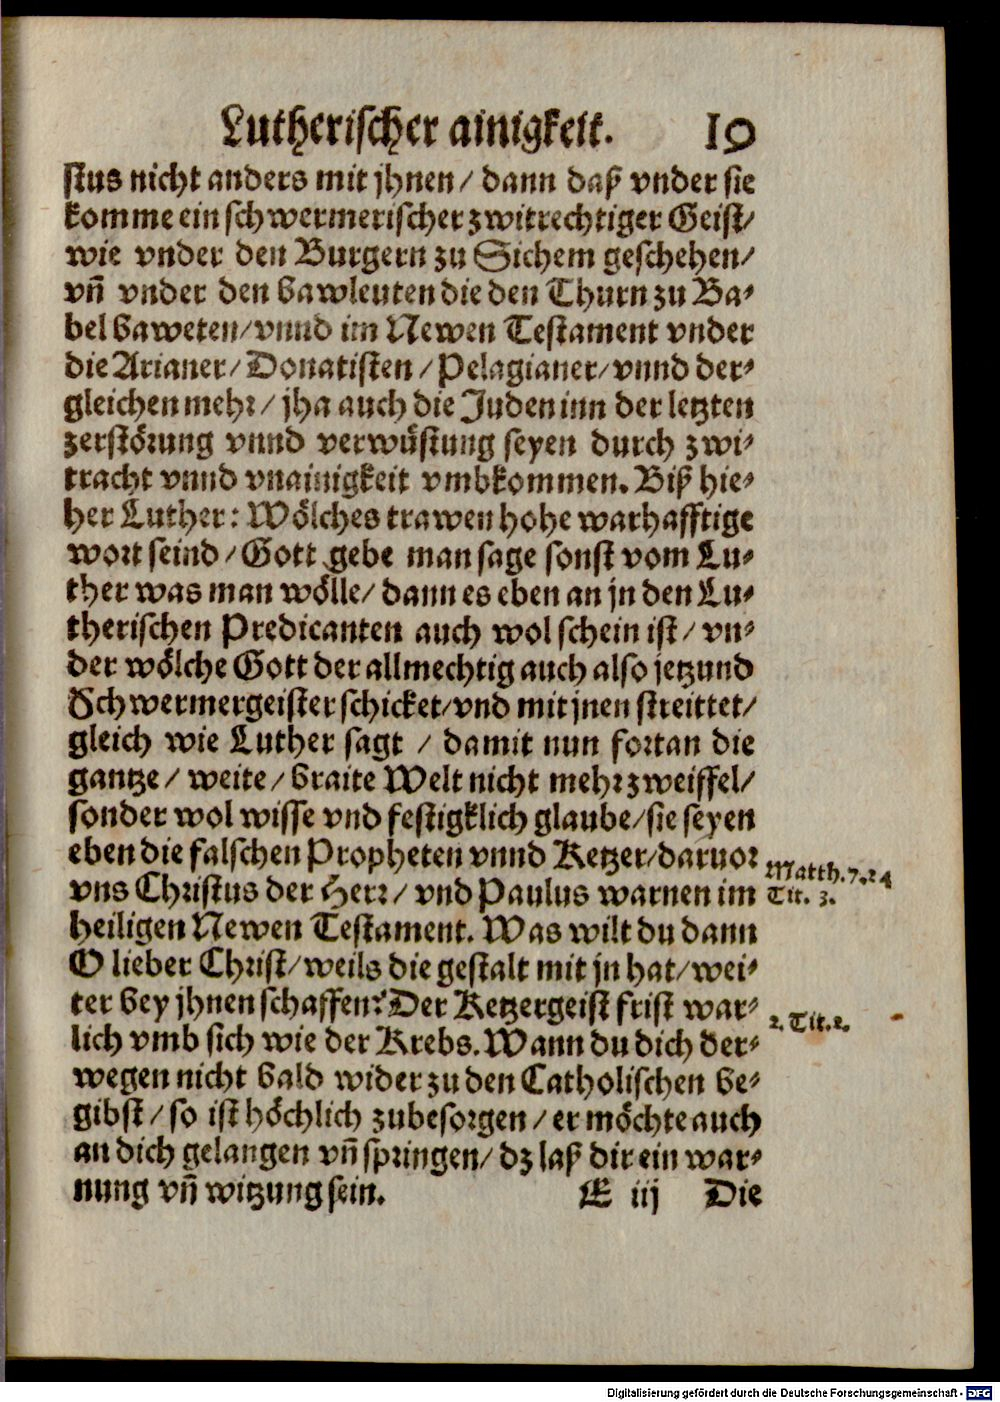 Lutherischer ainigkeit. 19
stus nicht anders mit jhnen/ dann daß vnder sie
komme ein schwermerischer zwitrechtiger Geist/
wie vnder den Burgern zu Sichem geschehen/
vñ vnder den bawleuten die den Thurn zu Ba-
bel baweten/vnnd im Newen Testament vnder
die Arianer/ Donatisten/ Pelagianer/ vnnd der-
gleichen mehr/ jha auch die Juden inn der letzten
zerstörung vnnd verwüstung seyen durch zwi-
tracht vnnd vnainigkeit vmbkommen. Biß hie-
her Luther: Wölches trawen hohe warhafftige
wort seind/ Gott gebe man sage sonst vom Lu-
ther was man wölle/ dann es eben an jn den Lu-
therischen Predicanten auch wol schein ist/ vn-
der wölche Gott der allmechtig auch also jetzund
Schwermergeister schicket/vnd mit jnen streittet/
gleich wie Luther sagt / damit nun fortan die
gantze/ weite/ braite Welt nicht mehr zweiffel/
sonder wol wisse vnd festigklich glaube/sie seyen
eben die falschen Propheten vnnd Ketzer/daruor
Matth.7.24
vns Christus der Herr/ vnd Paulus warnen im
Tit. 3.
heiligen Newen Testament. Was wilt du dann
O lieber Christ/weils die gestalt mit jn hat/wei-
ter bey jhnen schaffen? Der Ketzergeist frist war-
2. Tit.2.
lich vmb sich wie der Krebs. Wann du dich der-
wegen nicht bald wider zu den Catholischen be-
gibst/ so ist höchlich zubesorgen/ er möchte auch
an dich gelangen vñ springen/ dz laß dir ein war-
nung vñ witzung sein.
E iij Die
Digitalisierung gefördert durch die Deutsche Forschungsgemeinschaft - DFG